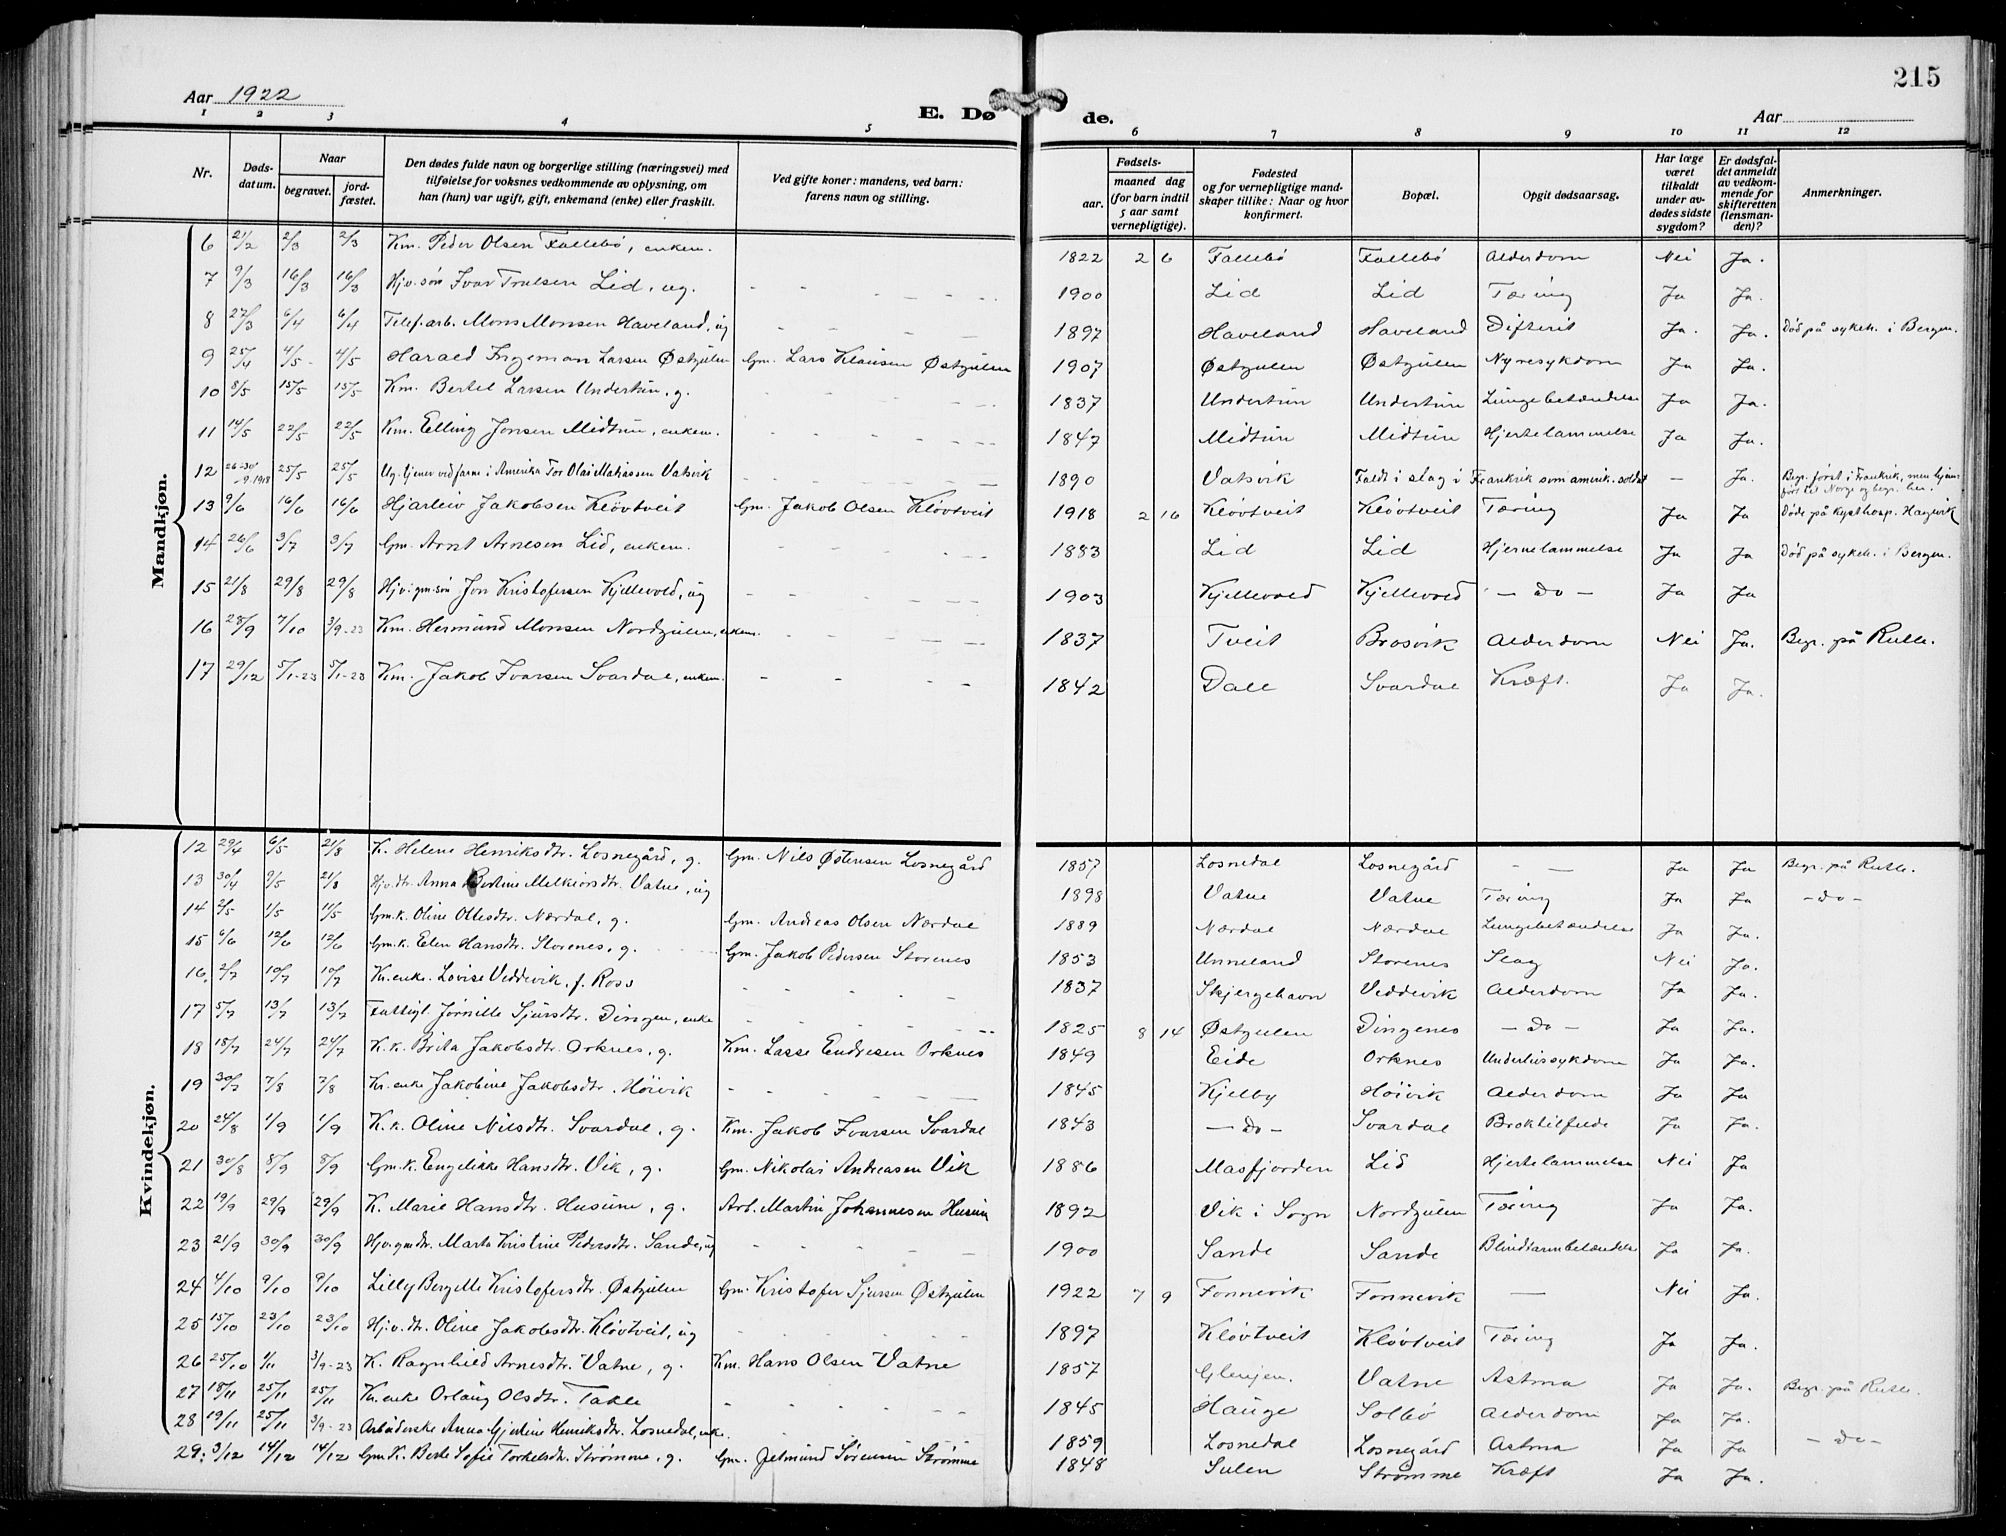 215
Aar 1922
E. Døde.
Aar
1 2 3 4 5 6 7 8 9 10 11 12
Nr.
Dødsdatum.
Naar
begravet.
jordfæstet.
Den dødes fulde navn og borgerlige stilling (næringsvei) med
tilføielse for voksnes vedkommende av oplysning, om
han (hun) var ugift, gift, enkemand (enke) eller fraskilt.
Ved gifte koner: mandens, ved barn:
farens navn og stilling.
Fødsels-
aar.
maaned dag
(for barn indtil
5 aar samt
vernepligtige).
Fødested
og for vernepligtige mandskaper tillike: Naar og hvor
konfirmert.
Bopæl.
Opgit dødsaarsag.
Har læge
været
tilkaldt
under avdødes sidste
sygdom?
Er dødsfaldet anmeldt
av vedkommende for
skifteretten
(lensmanden)?
Anmerkninger.
Mandkjøn.
6 21/2 2/3 2/3 Km. Peder Olsen Fallebø, enkem. 1822 2 6 Fallebø Fallebø Alderdom Nei Ja.
7 9/3 16/3 16/3 Hjv. søn Ivar Trulsen Lid, ug. - - - 1900 Lid Lid Tæring Ja Ja.
8 27/3 6/4 6/4 Telef.arb. Mons Monsen Haveland, ug - - - 1897 Haveland Haveland Difterit Ja. Ja. Død på sykeh. i Bergen.
9 25/4 4/5 4/5 Harald Ingeman Larsen Østgulen Gm. Lars Klausen Østgulen 1907 Østgulen Østgulen Nyresykdom Ja Ja.
10 8/5 15/5 15/5 Km. Bertel Larsen Undertun, g. - - - 1837 Undertun Undertun Lungebetændelse Ja Ja.
11 14/5 22/5 22/5 Km. Elling Jonsen Midtun, enkem. - - - 1847 Midtun Midtun Hjertelammelse Ja Ja.
12 26-30/9.1918 25/5 25/5 Ug. tjener ved farm i Amerika Tor Olai Matiassen Vatsvik 1890 Vatsvik Faldt i slag i Frankrik som amerik. soldat - Ja. Begr. først i Frankrik, men hjemført til Norge og begr. her.
13 9/6 16/6 16/6 Hjarleiv Jakobsen Kløvtveit Gm. Jakob Olsen Kløvtveit 1918 2 16 Kløvtveit Kløvtveit Tæring Ja Ja Døde på kysthosp. Hagevik
14 26/6 3/7 3/7 Gm. Arnt Arnesen Lid, enkem. - - - 1883 Lid Lid Hjernelammelse Ja Ja Død på sykeh. i Bergen.
15 21/8 29/8 29/8 Hjv. gm.søn Jon Kristofersen Kjellevold, ug - - - 1903 Kjellevold Kjellevold - Do - Ja Ja
16 28/9 7/10 3/9-23 Km. Hermund Monsen Nordgulen, enkem. - - - 1837 Tveit Brosvik Alderdom Nei Ja. Begr. på Rutle.
17 29/12 5/1-23 5/1-23 Km. Jakob Ivarsen Svardal, enkem. - - - 1842 Dale Svardal Kræft. Ja Ja.
Kvindekjøn.
12 29/4 6/5 21/8 K. Helene Henriksdtr. Losnegård, g. Gm. Nils Østensen Losnegård 1857 Losnedal Losnegård - Ja Ja Begr. på Rutle.
13 30/4 9/5 21/8 Hjv. dtr. Anna Bertine Melkiorsdtr. Vatne, ug 1898 Vatne Vatne Tæring Ja Ja - Do -
14 2/5 11/5 11/5 Gm.k. Oline Ollesdtr. Nærdal, g. Gm. Andreas Olsen Nærdal 1889 Nærdal Nærdal Lungebetændelse Ja Ja.
15 6/6 12/6 12/6 Gm.k. Elen Hansdtr. Storenes, g. Gm. Jakob Pedersen Storenes 1853 Unneland Storenes Slag Nei Ja.
16 2/7 10/7 10/7 Km.enke. Lovise Veddevik, f. Ross - - - 1837 Skjergehavn Veddevik Alderdom Ja Ja.
17 5/7 13/7 13/7 Fattigl. Jørnille Sjursdtr. Dingen, enke - - - 1825 8 14 Østgulen Dingenes - Do - Ja Ja.
18 18/7 24/7 24/7 K.k. Brita Jakobsdtr. Orknes, g. Km. Lasse Endresen Orknes 1849 Eide Orknes Underlivssykdom Ja Ja.
19 30/7 7/8 7/8 Km.enke Jakobine Jakobsdtr. Høivik - - - 1845 Kjelby Høivik Alderdom Ja Ja
20 24/8 1/9 1/9 K.k. Oline Nilsdtr. Svardal, g. Km. Jakob Ivarsen Svardal 1843 - Do - Svardal Broktilfelde Ja Ja.
21 30/8 8/9 8/9 Gm.k. Engelikke Hansdtr. Vik, g. Gm. Nikolai Andreasen Vik 1886 Masfjorden Lid Hjertelammelse Nei Ja
22 19/9 29/9 29/9 K. Marie Hansdtr. Husune, g. Arb. Martin Johannesen Husun 1892 Vik i Sogn Nordgulen Tæring Ja Ja.
23 21/9 30/9 30/9 Hjv. gm.dtr. Marta Kristine Pedersdtr. Sande, ug - - - 1900 Sande Sande Blindtarmbetændelse Ja Ja.
24 4/10 9/10 9/10 Lilly Bergette Kristofersdtr. Østgulen Gm. Kristofer Sjursen Østgulen 1922 7 9 Fonnevik Fonnevik - Nei Ja.
25 15/10 23/10 23/10 Hj.v.dtr. Oline Jakobsdtr. Kløvtveit, ug - - - 1897 Kløvtveit Kløvtveit Tæring Ja Ja.
26 25/10 1/11 3/9-23 K. Ragnhild Arnesdtr. Vatne, g. Km. Hans Olsen Vatne 1857 Glenjen. Vatne Astma Ja Ja. Begr. på Rutle.
27 18/11 25/11 25/11 Km.enke Orlaug Olsdtr. Takle - - - 1845 Hauge Solbø Alderdom Ja Ja.
28 19/11 25/11 3/9-23 Arbeiderske Anna Gjertine Henriksdtr. Losnedal, enke. - - - 1859 Losnedal Losnegård Astma Ja Ja - Do -
29 3/12 14/12 14/12 Gm.K. Berte Sofie Torkelsdtr. Strømme, g. Gm. Jetmund Sørensen Strømme 1848 Sulen Strømme Kræft Ja Ja.